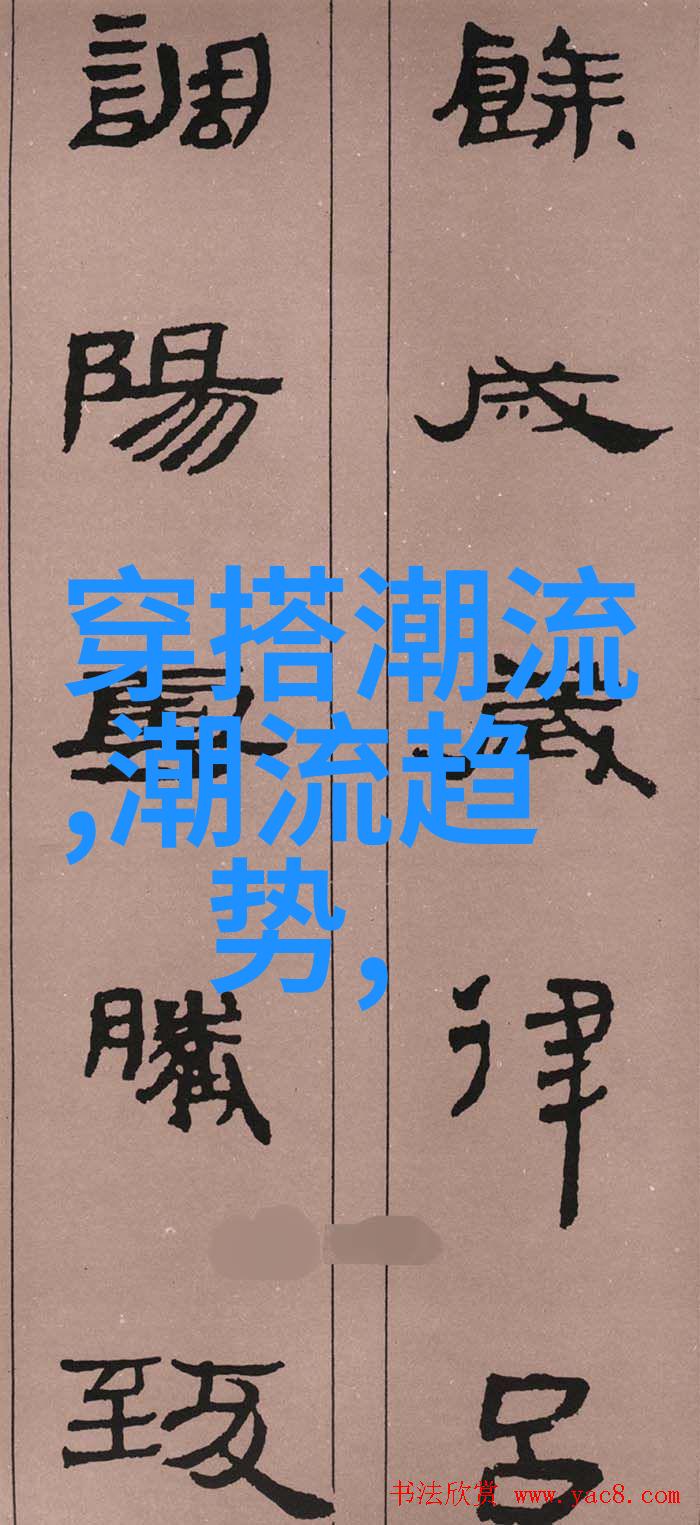 餘成歲律呂
調陽騰致
穿搭潮流
,潮流趋
势,
书法欣赏 www.yac8.com